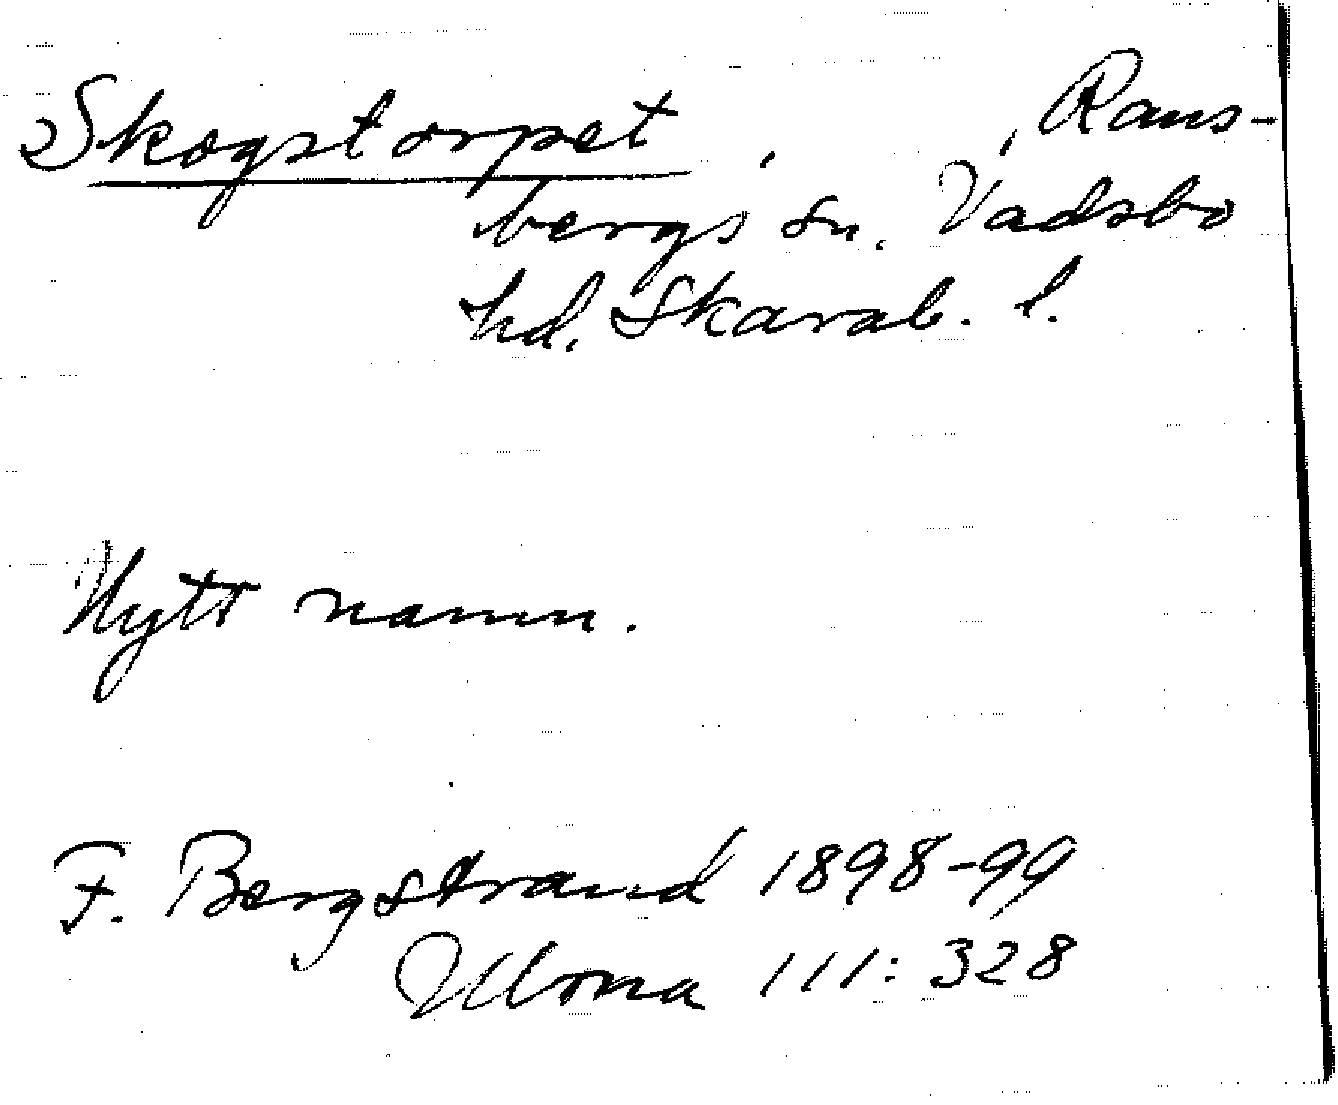 Skogstorpet, , Rans-
bergs sn. Vadsbo
hd. Skarab. l.
Nytt namn.
F. Bergstrand 1898-99
111: 328